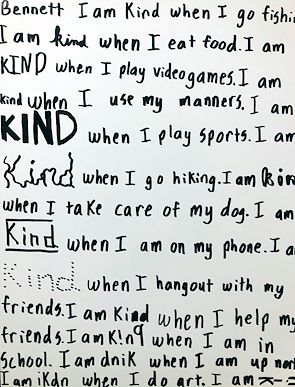 Bennett I am Kind when I go fishin
I am kind when I eat food. I am
KIND when I play videogames. I am
kind when I use my manners. I am
KIND when I play sports. I am
Kind when I go hiking. I am Kin
when I take care of my dog. I am
Kind when I am on my phone. I a
Kind when I hangout with my
friends. I am Kind when I help my
friends. I am K!nd when I am in
school. I am dnik when I am up nor
I am iKdn when I do art. I am